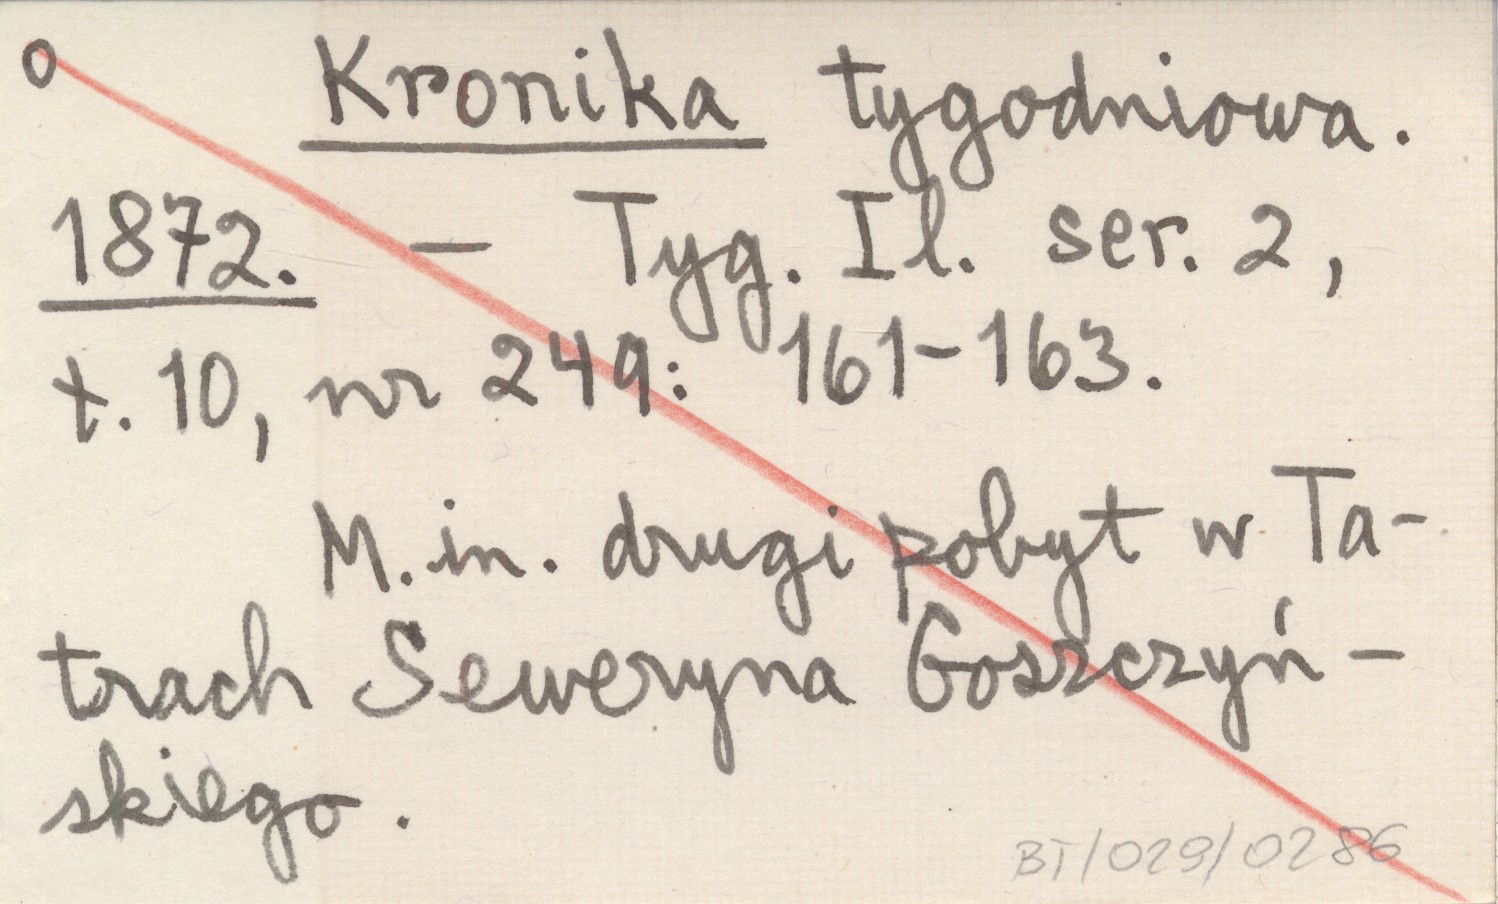 o Kronika tygodniowa.
1872. — Tyg. Il. ser. 2,
t. 10, nr 249: 161-163.
M. in. drugi pobyt w Ta-
trach Seweryna Goszczyń-
skiego.
BT/029/0286